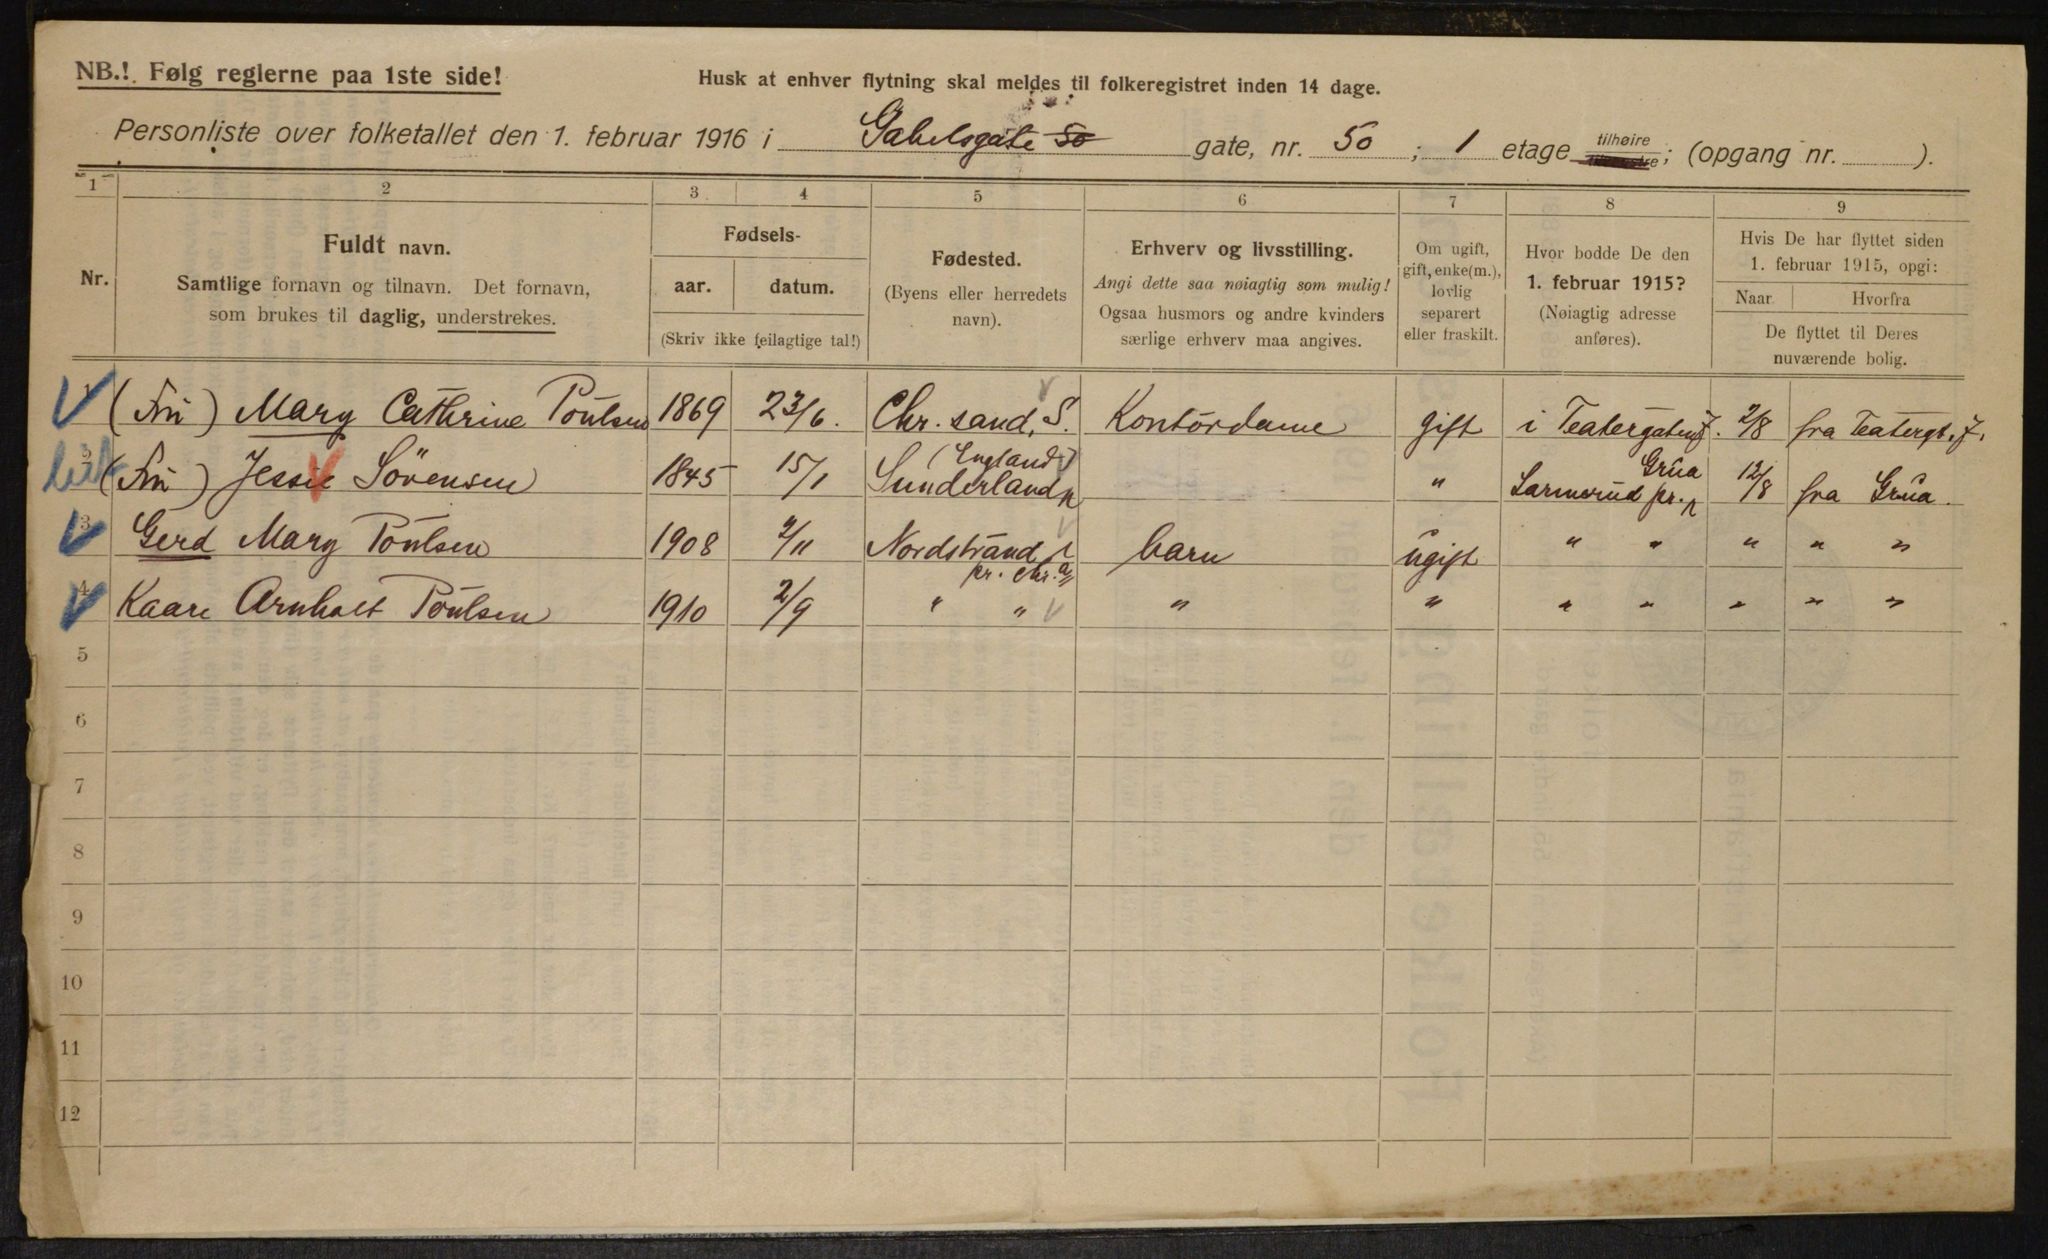 NB.! Følg reglerne paa 1ste side!
Husk at enhver flytning skal meldes til folkeregistret inden 14 dage.
Personliste over folketallet den 1. februar 1916 i Gabelsgate 50 gate, nr. 50 ; 1 etage tilhøire ; (opgang nr. ).
1 2 3 4 5 6 7 8 9
Nr.
Fuldt navn.
Samtlige fornavn og tilnavn. Det fornavn,
som brukes til daglig, understrekes.
Fødsels-
aar. datum.
(Skriv ikke feilagtige tal!)
Fødested.
(Byens eller herredets
navn).
Erhverv og livsstilling.
Angi dette saa nøiagtig som mulig!
Ogsaa husmors og andre kvinders
særlige erhverv maa angives.
Om ugift,
gift, enke(m.),
lovlig
separert
eller fraskilt.
Hvor bodde De den
1. februar 1915?
(Nøiagtig adresse
anføres).
Hvis De har flyttet siden
1. februar 1915, opgi:
Naar Hvorfra
De flyttet til Deres
nuværende bolig.
(Fru) Mary Cathrine Poulsen 1869 23/6. Chr. sand, S. Kontordame gift i Teatergaten 7. 2/8 fra Teatergt. 7.
(Fru) Jessie Sörensen 1845 15/1 Sunderland (England) " pr. Grua 12/8 fra Grua.
3 Gerd Mary Poulsen 1908 2/11 Nordstrand pr. Chr.a barn ugift " " " " "
4 Kaare Arnholt Poulsen 1910 2/9 " " " " " " " " "
5
6
7
8
9
10
11
12